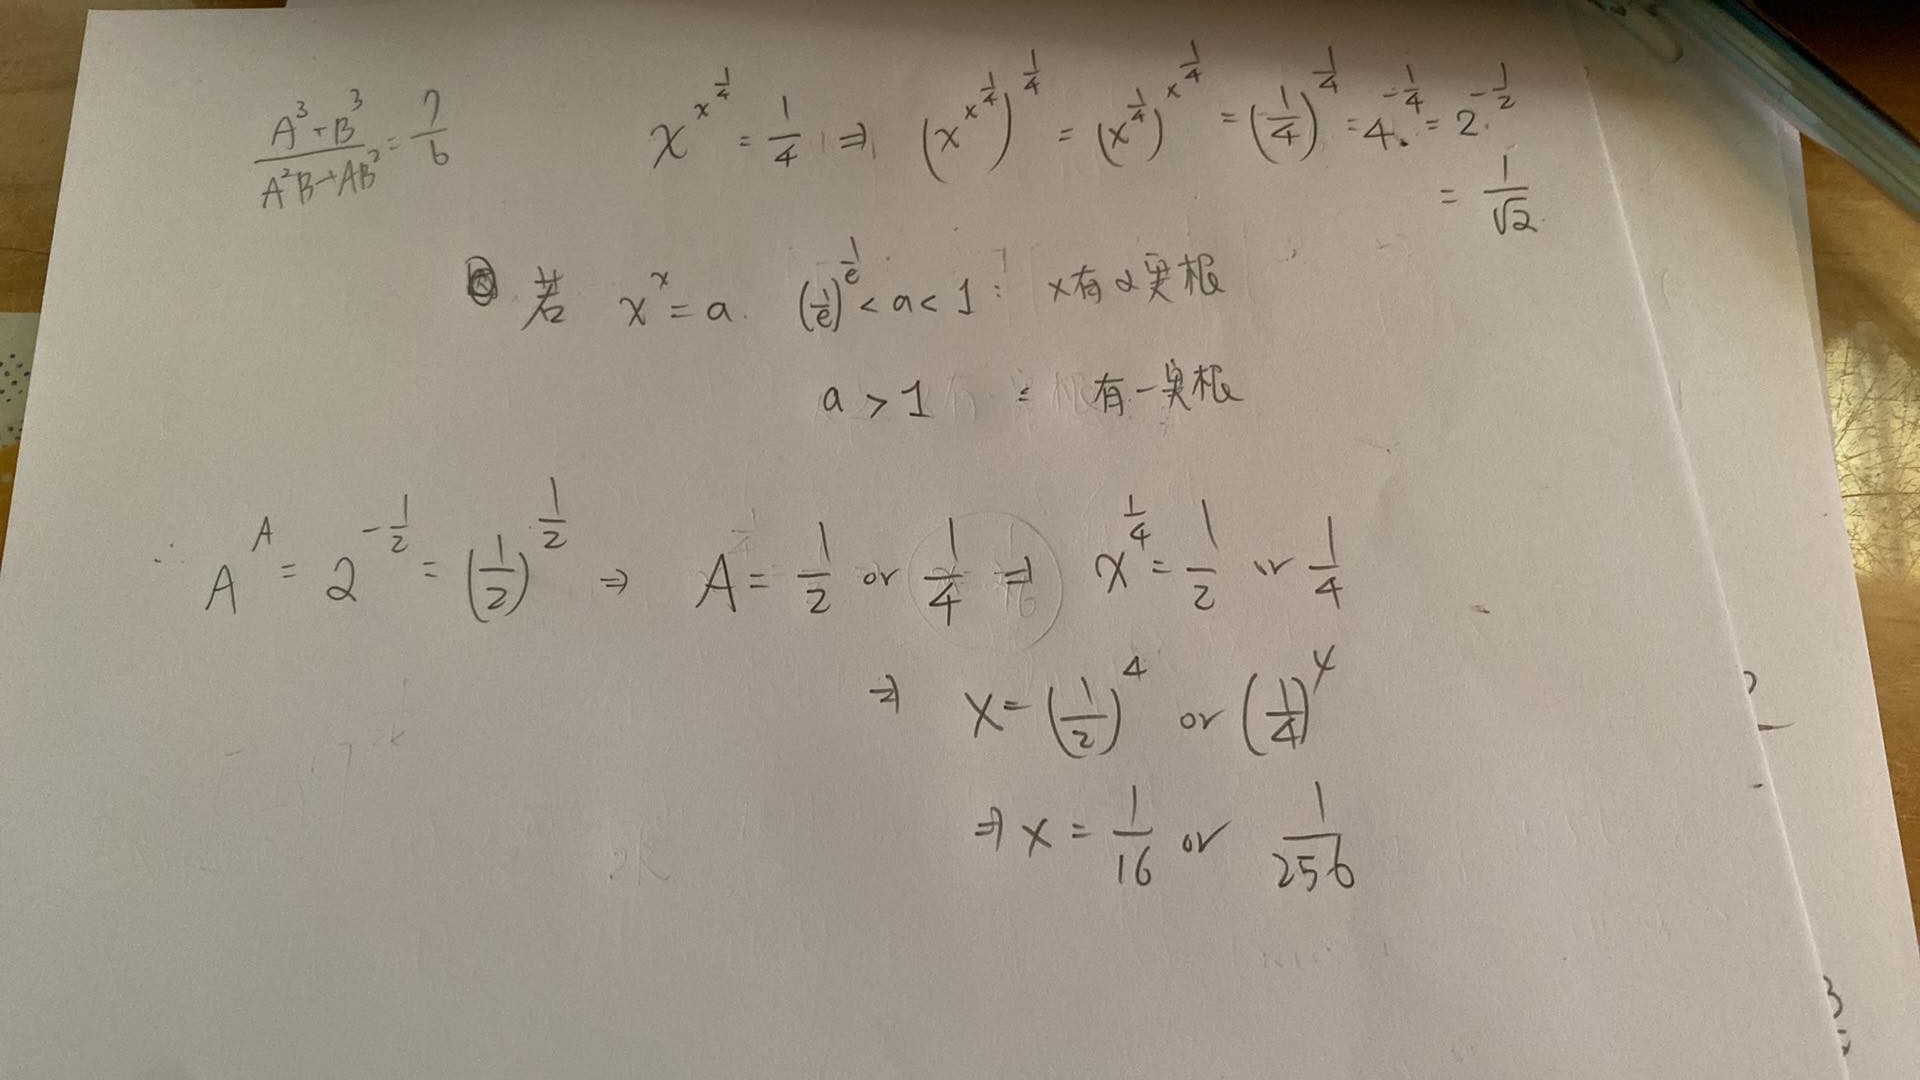 (A³+B³)/(A²B+AB²) = 7/6
x^(x^(1/4)) = 1/4 ⇒ (x^(x^(1/4)))^(1/4) = (x^(1/4))^(x^(1/4)) = (1/4)^(1/4) = 4^(-1/4) = 2^(-1/2)
= 1/√2
若 x^x = a. (1/e)^(1/e) < a < 1 : x有2实根
a > 1 : 有一实根
∴ A^A = 2^(-1/2) = (1/2)^(1/2) ⇒ A = 1/2 or 1/4 ⇒ x^(1/4) = 1/2 or 1/4
⇒ x = (1/2)^4 or (1/4)^4
⇒ x = 1/16 or 1/256